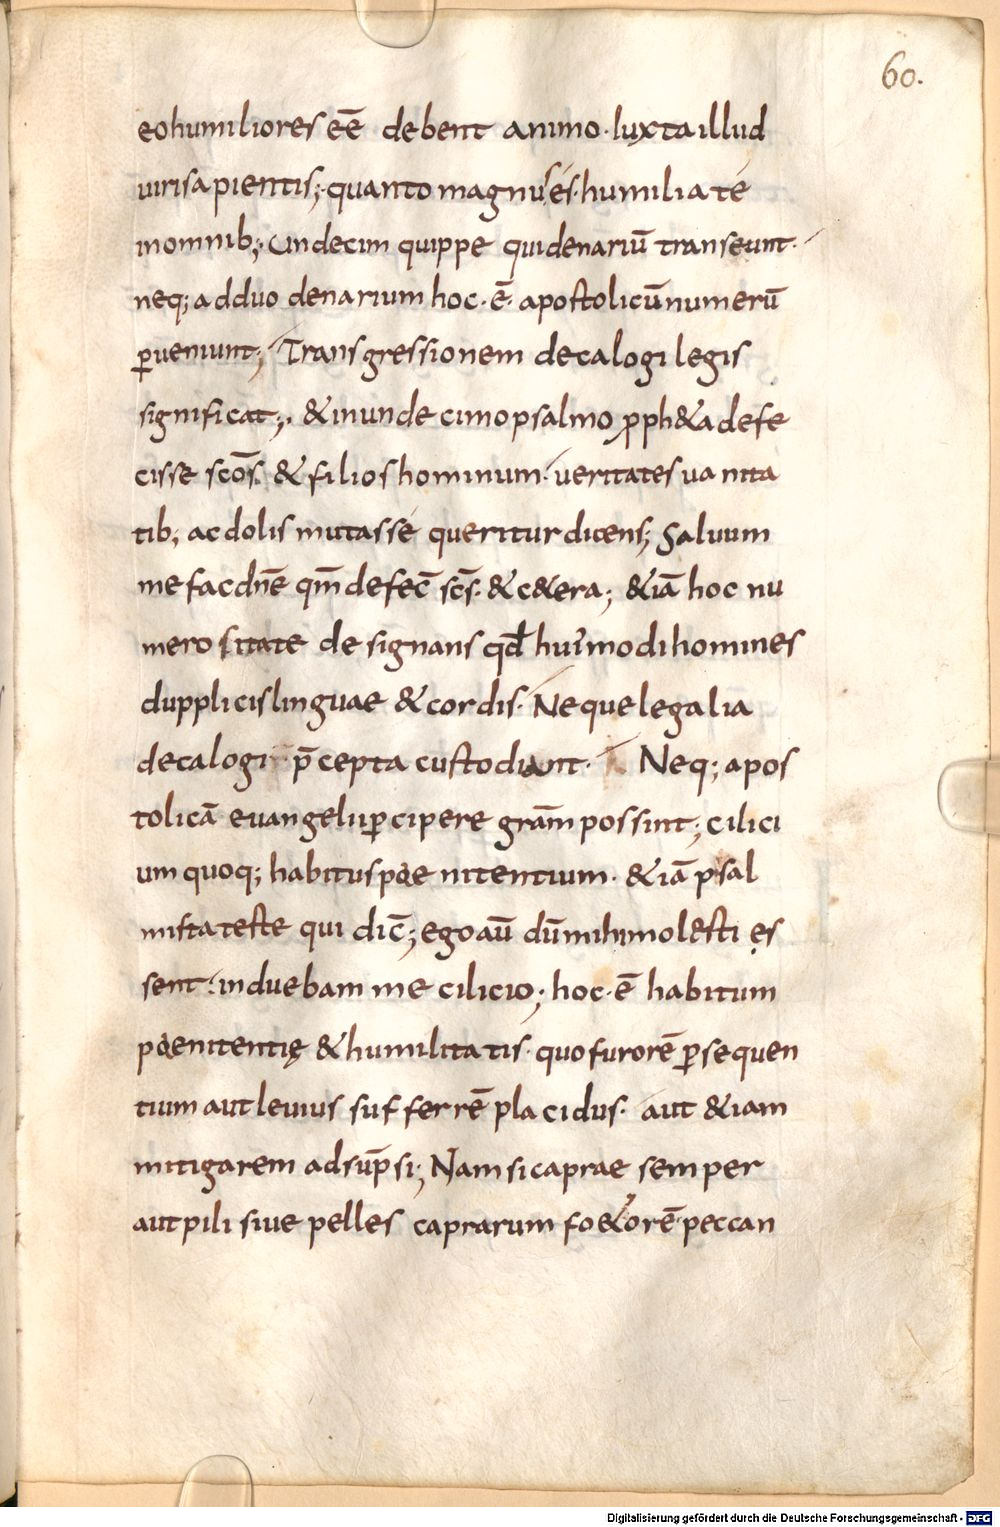 60.
eo humiliores eē debent animo · Iuxta illud
viri sapientis; quanto magnus és · humilia té
in omnib; · Undecim quippe qui denariū transeunt ·
neq; ad duodenarium hoc · ē · apostolicū numerū
p̱ueniunt; Transgressionem decalogi legis
significat; · & in undecimo psalmo p̱ph&a defe
cisse sc̄os · & filios hominum · veritates vanita
tib; ac dolis mutasse queritur dicens; Saluum
me fac dn̄e qm̄ defec̄ sc̄s · & c&era; &iā hoc nu
merositate designans qđ hui᾽modi homines
dupplicis linguae & cordis · Neque legalia
decalogi p̄cepta custodiant · Neq; apos
tolicā euangelii p̱cipere grām possint; cilici
um quoq; habitus poenitentium · &iā psal
mista teste qui dic̄; ego aū dū mihi molesti es
sent · induebam me cilicio; hoc · ē habitum
poenitentię & humilitatis · quo furorē p̱sequen
tium aut leuius sufferrē placidus · aut &iam
mitigarem adsūpsi; Nam si caprae semper
aut pili siue pelles caprarum fo&orē peccan
Digitalisierung gefördert durch die Deutsche Forschungsgemeinschaft - DFG